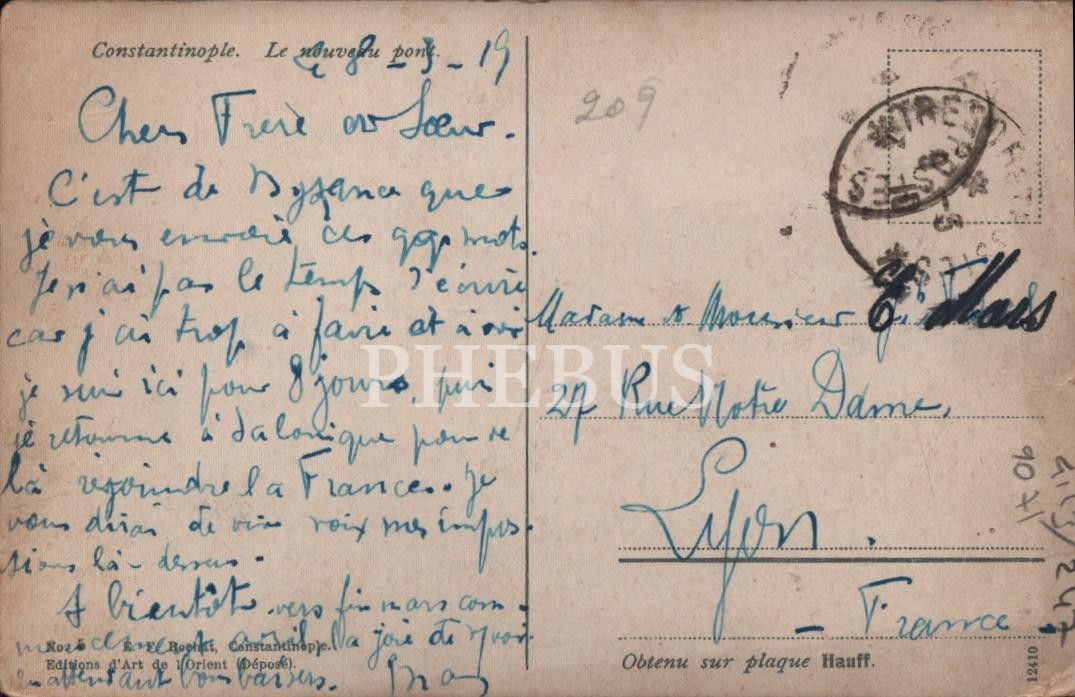 Constantinople. Le nouveau pont.
Le 8 - 3 - 19
Chers Frère et Soeur.
C'est de Bysance que
je vous envoie ces qqs mots.
Je n'ai pas le temps d'écrire
car j'ai trop à faire et à voir
je suis ici pour 8 jours, puis
je retourne à Salonique pour de
là rejoindre la France. Je
vous dirai de vive voix mes impres-
sions là-dessus.
A bientôt vers fin mars com-
avril la joie de
en attendant bons baisers.
No. E. F. Rochat, Constantinople.
Editions d'Art de l'Orient (Déposé).
209
TRESOR ET
POSTES
Madame et Monsieur
27 Rue Notre Dame.
Lyon.
France
Obtenu sur plaque Hauff.
12410
PHEBUS